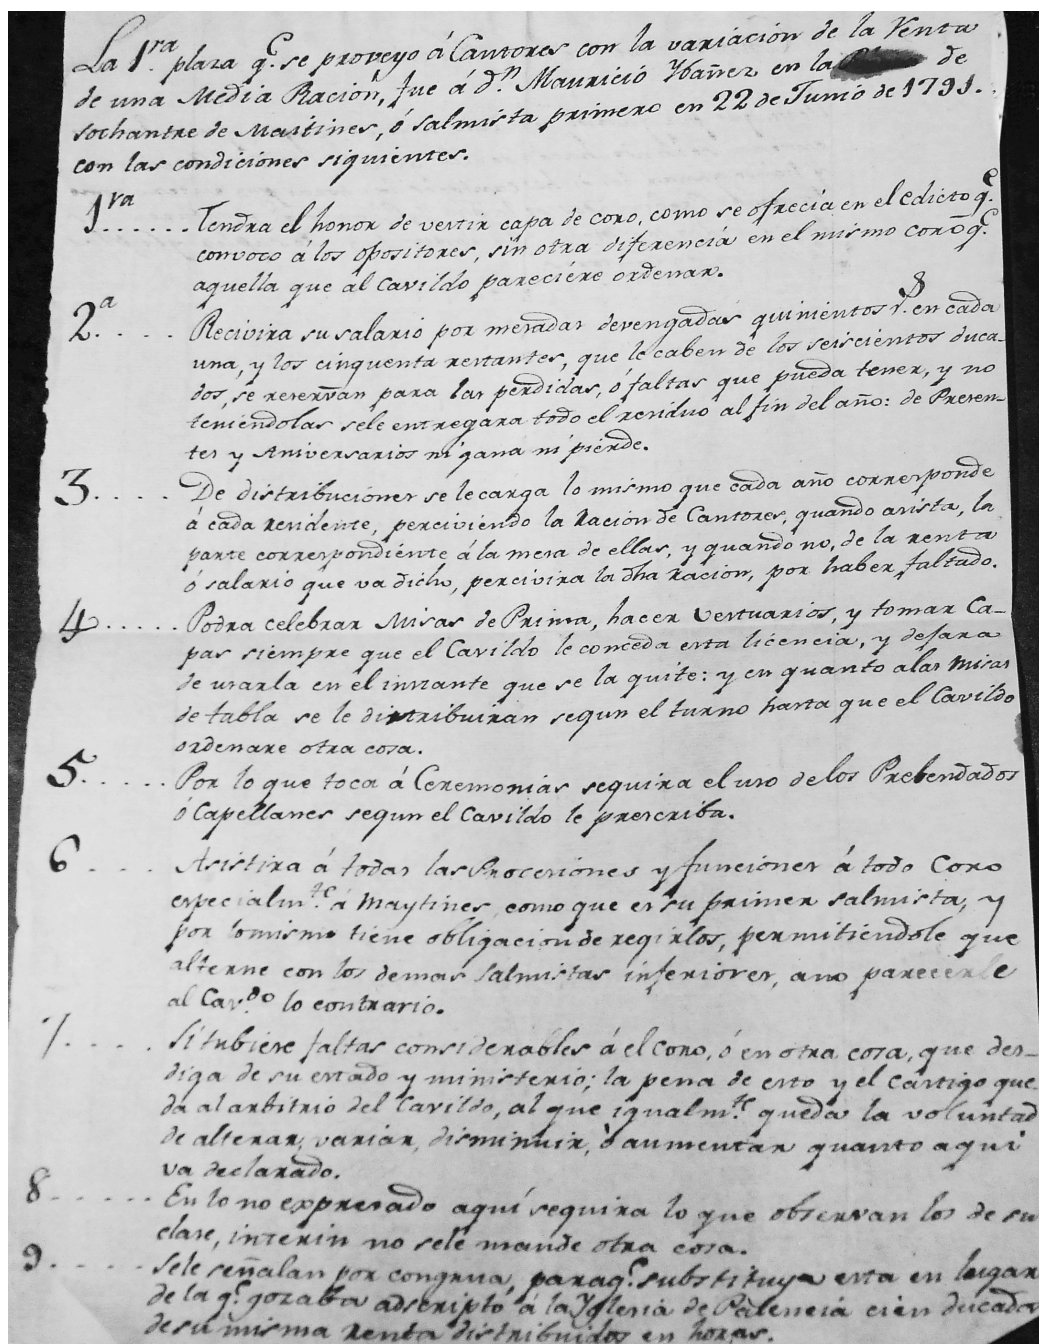 La 1.ra plaza q.e se proveyo á Cantores con la variación de la Venta
de una Media Ración, fue á d.n Mauricio Ybañez en la de
sochantre de Maitines, ó salmista primero en 22 de Junio de 1791.
con las condiciónes siguientes.
1.ra ...... Tendra el honor de vestir capa de coro, como se ofrecia en el edicto q.e
convoco á los opositores, sin otra diferencia en el mismo coro q.e
aquella que al Cavildo pareciére ordenar.
2.a .... Recivira su salario por mesadas devengadas quinientos r.s en cada
una, y los cinquenta restantes, que le caben de los seiscientos duca-
dos, se reservan para las perdidas, ó faltas que pueda tener, y no
teniéndolas sele entregara todo el residuo al fin del año: de Presen-
tes y Aniversarios ni gana ni pierde.
3..... De distribuciones se le carga lo mismo que cada año corresponde
á cada residente, perciviendo la Racion de Cantores, quando asista, la
parte correspondiénte á la mesa de ellas, y quando no, de la renta
ó salario que va dicho, percivira la dha Racion, por haber faltado.
4..... Podra celebrar Misas de Prima, hacer Vestuarios, y tomar Ca-
pas siempre que el Cavildo le conceda esta licencia, y dejara
de usarla en el instante que se la quite: y en quanto alas Misas
de tabla se le distribuiran segun el turno hasta que el Cavildo
ordenare otra cosa.
5..... Por lo que toca á Ceremonias seguira el uso delos Prebendados
ó Capellanes segun el Cavildo le prescriba.
6.... Asistira á todas las Procesiónes y funciones á todo Coro
especialm.te á Maytines, como que es su primer salmista, y
por lomismo tiene obligacion de regirlos, permitiéndole que
alterne con los demas salmistas inferiores, ano parecerle
al Cav.do lo contrario.
7..... Si tubiere faltas considerables á el Coro, ó en otra cosa, que des-
diga de su estado y ministerio; la pena de esto y el castigo que-
da al arbitrio del Cavildo, al que igualm.te queda la voluntad
de alterar, variar, disminuir, ó aumentar quanto aqui
va declarado.
8...... En lo no expresado aquí seguira lo que observan los de su
clase, interin no sele mande otra cosa.
9..... Sele señalan por congrua, paraq.e substituya esta en lugar
de la q.e gozaba adscripto á la Yglesia de Palencia cien ducados
desu misma renta distribuidos en horas.